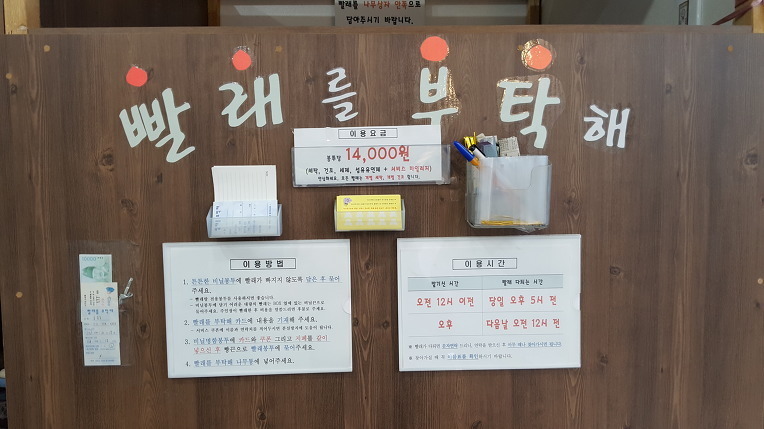 빨래를 나무상자 안쪽으로
담아주시기 바랍니다.
빨래를 부탁해
이용요금
봉투당 14,000원
(세탁, 건조, 세제, 섬유유연제 + 서비스 마일리지)
안심하세요. 모든 빨래는 개별 세탁, 개별 건조 합니다.
이용방법
1. 튼튼한 비닐봉투에 빨래가 빠지지 않도록 담은 후 묶어
주세요.
2. 빨래를 부탁해 카드에 내용을 기재해 주세요.
3. 비닐명함봉투에 카드와 쿠폰 그리고 지폐를 같이
넣으신 후 빵끈으로 빨래봉투에 묶어주세요.
4. 빨래를 부탁해 나무통에 넣어주세요.
이용시간
맡기신 시간 빨래 다되는 시간
오전 12시 이전 당일 오후 5시 전
오후 다음날 오전 12시 전